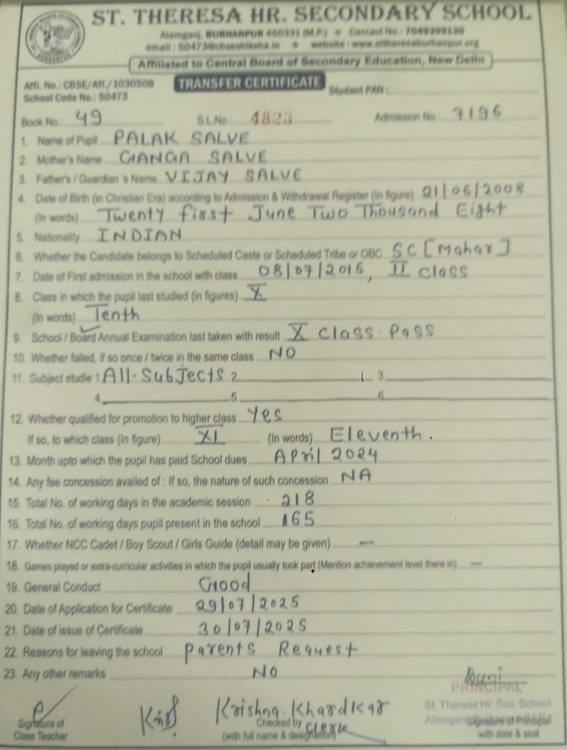 ST. THERESA HR. SECONDARY SCHOOL
Alamganj, BURHANPUR 450331 (M.P.) Contact No : 7049399136
email : 50473@cbseshiksha.in website : www.sttheresaburhanpur.org
Affiliated to Central Board of Secondary Education, New Delhi
Affi. No.: CBSE/Aff./1030508 TRANSFER CERTIFICATE Student PAN :
School Code No.: 50473
Book No.: 49 S.L.No 4823 Admission No 7196
1. Name of Pupil PALAK SALVE
2. Mother's Name GANGA SALVE
3. Father's / Guardian 's Name VIJAY SALVE
4. Date of Birth (in Christian Era) according to Admission & Withdrawal Register (in figure) 21/06/2008
(In words) Twenty first June Two Thousand Eight
5. Nationality INDIAN
6. Whether the Candidate belongs to Scheduled Caste or Scheduled Tribe or OBC SC [Mahar]
7. Date of First admission in the school with class 08/07/2015, II class
8. Class in which the pupil last studied (in figures) X
(In words) Tenth
9. School / Board Annual Examination last taken with result X class Pass
10. Whether failed, if so once / twice in the same class NO
11. Subject studie 1 All Subjects 2 3
4 5 6
12. Whether qualified for promotion to higher class Yes
If so, to which class (In figure) XI (In words) Eleventh.
13. Month upto which the pupil has paid School dues April 2024
14. Any fee concession availed of : If so, the nature of such concession NA
15. Total No. of working days in the academic session 218
16. Total No. of working days pupil present in the school 165
17. Whether NCC Cadet / Boy Scout / Girls Guide (detail may be given) —
18. Games played or extra-curricular activities in which the pupil usually took part (Mention achievement level there in) —
19. General Conduct Good
20. Date of Application for Certificate 29/07/2025
21. Date of issue of Certificate 30/07/2025
22. Reasons for leaving the school Parents Request
23. Any other remarks NO
PRINCIPAL
Krishna Khardkar St. Theresa Hr. Sec. School
Signature of Checked by Clerk Alamganj Signature of Principal
Class Teacher (with full name & designation) with date & seal